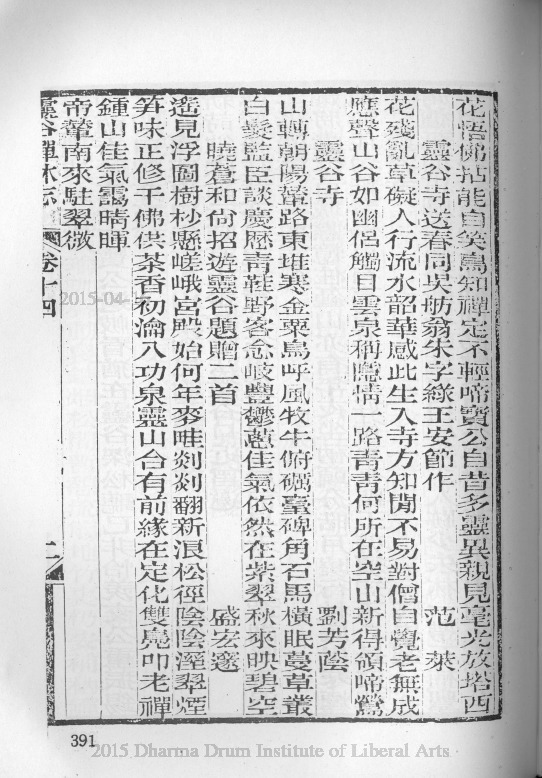 花悟佛拈能自笑鳥知禪定不輕啼寶公自昔多靈異親見毫光放塔西
靈谷寺送春同吳舫翁朱字綠王安節作 范萊
花殘亂草礙人行流水韶華感此生入寺方知閒不易對僧自覺老無成
應聲山谷如幽侶觸目雲泉稱隱情一路青青何所在空山新得領啼鶯
靈谷寺 劉芳蔭
山轉朝陽輦路東堆寒金粟鳥呼風牧牛俯礪臺碑角石馬橫眠蔓草叢
白髮監臣談慶歷青鞋野客念岐豐鬱蔥佳氣依然在紫翠秋來映碧空
曉蒼和尙招遊靈谷題贈二首 盛宏邃
遙見浮圖樹杪懸嵯峨宮殿始何年麥畦剡剡翻新浪松徑陰陰溼翠煙
笋味正修千佛供茶香初瀹八功泉靈山合有前緣在定化雙鳧叩老禪
鍾山佳氣靄晴暉
帝輦南來駐翠微
靈谷禪林志 卷十四 二
391
2015-04-
2015 Dharma Drum Institute of Liberal Arts